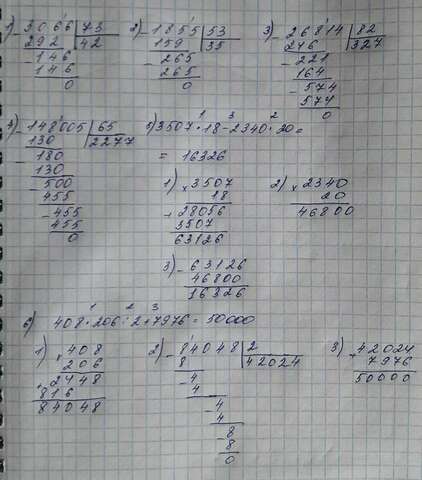 1) - 3066 | 73
292 | 42
- 146
146
0
2) - 1855 | 53
159 | 35
- 265
265
0
3) - 26814 | 82
246 | 327
- 221
164
- 574
574
0
4) - 148005 | 65
130 | 2277
- 180
130
- 500
455
- 455
455
0
5) 3507 · 18 - 2340 · 20 =
1 3 2
= 16326
1) × 3507
18
+ 28056
3507
63126
2) × 2340
20
46800
3) - 63126
46800
16326
6) 408 · 206 : 2 + 7976 = 50000
1 2 3
1) × 408
206
+ 2448
816
84048
2) - 84048 | 2
8 | 42024
- 4
4
- 4
4
- 8
8
0
3) + 42024
7976
50000